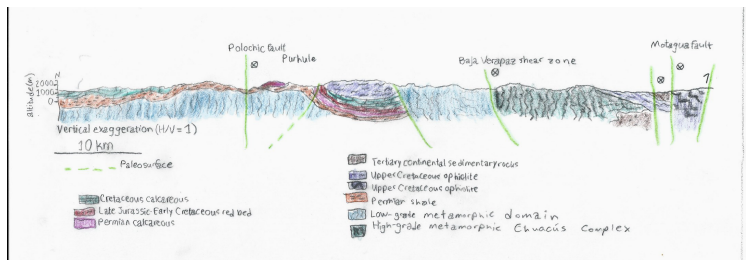 Polochic fault
Purhule
Baja Verapaz shear zone
Motagua fault
N
2000
1000
0
altitude(m)
Vertical exaggeration (H/V=1)
10 km
Paleosurface
Cretaceous calcareous
Late Jurassic-Early Cretaceous red bed
Permian calcareous
Tertiary continental sedimentary rocks
Upper Cretaceous ophiolite
Upper Cretaceous ophiolite
Permian shale
Low-grade metamorphic domain
High-grade metamorphic Chuacús Complex